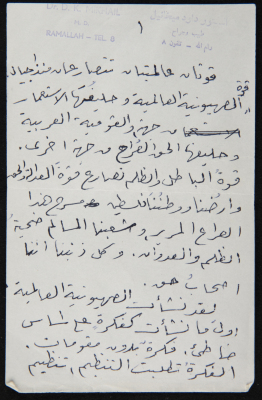 ١
RAMALLAH - TEL. 8
قوتان عالميتان تتصارعان منذ اجيال
قوة الصهيونية العالمية وحليفتها الاستعمار
من جهة والقومية العربية
وحليفها الحق الصُراح من جهة اخرى.
قوة الباطل والظلم تصارع قوة العدل والحق
وارضُنا ووطنُنا فلسطين مسرح هذا
الصراع المرير وشعبنا المسالم ضحيةُ
الظلم والعدوان. وكل ذنبنا اننا
اصحابُ حق.
لقد نشأت الصهيونية العالمية
اول ما نشأت كفكرةٍ على اساس
خاطئ. فكرة بدون مقومات.
الفكرة تطلبت التنظيم، تنظيم